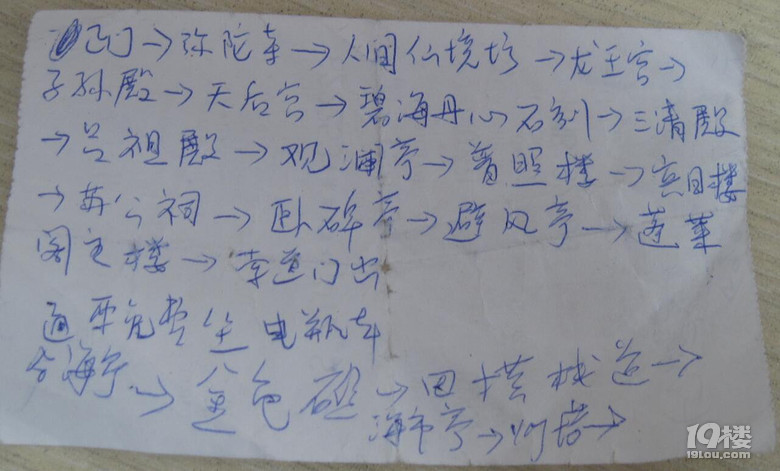 西门→弥陀寺→人间仙境坊→龙王宫→
子孙殿→天后宫→碧海丹心石刻→三清殿
→吕祖殿→观澜亭→普照楼→宾日楼
→苏公祠→卧碑亭→避风亭→蓬莱
阁主楼→李道门出
通票免费坐电瓶车
合海亭→金色礁→田横栈道→
海市亭→灯塔→
19楼
19lou.com